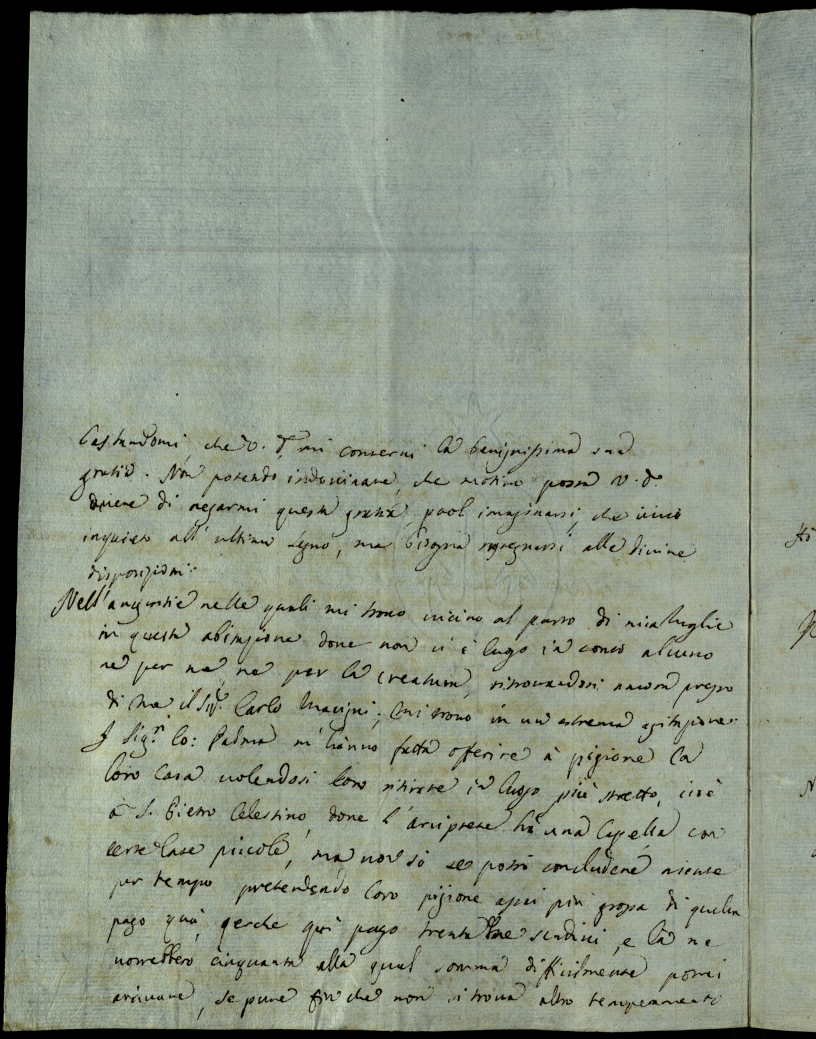 bastandomi che V. S. mi conservi la benignissima sua
gratia. Non potendo indovinare, che motivo possa V. S.
avere di negarmi questa gratia, puol imaginarsi, che vivo
inquieto all'ultimo segno, ma bisogna rassegnarsi alle divine
disposizioni.
Nell'angustie nelle quali mi trovo vicino al parto di mia moglie
in questa abitazione dove non vi è lugo in conto alcuno
ne per me, ne per la creatura, ritrovandosi ancora presso
di me il Sigr. Carlo Macigni, mi trovo in una estrema agitazione.
I Sigri. Co: Padma m'hanno fatta offerire à pigione la
loro Casa volendosi loro ritirare in lugo più stretto, cioè
à S. Pietro Celestino, dove l'arciprete hà una Capella con
certe Case piccole, ma non sò se potrò concludere niente
per tempo pretendendo loro pigione assai più grossa di quella
pago quà, perche qui pago trenta tre scudini, e là ne
vorrebbero cinquanta alla qual somma difficilmente potrei
arrivare, se pure fin che non si trova altro temperamento